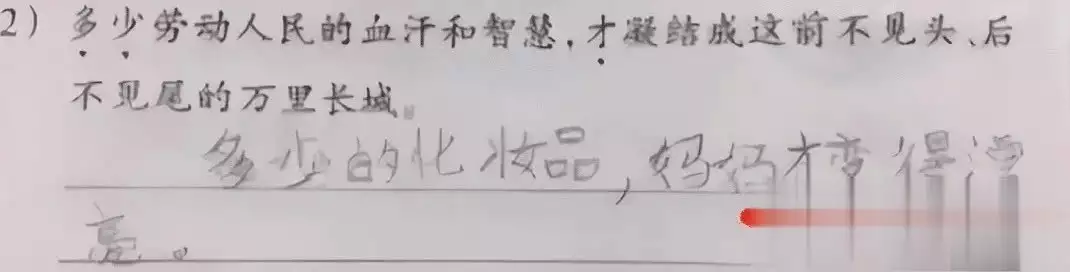 2）多少劳动人民的血汗和智慧，才凝结成这前不见头、后
不见尾的万里长城。
多少的化妆品，妈妈才变得漂
亮。